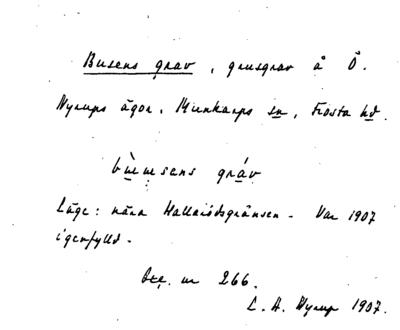 Busens grav, grusgrav å Ö.
Nyrups ägor, Munkarps sn, Frosta hd.
bu̇msens gráv
Läge: nära Hallarödsgränsen. Var 1907
igenfylld.
Ant. nr 266.
L. A. Nyrup 1907.